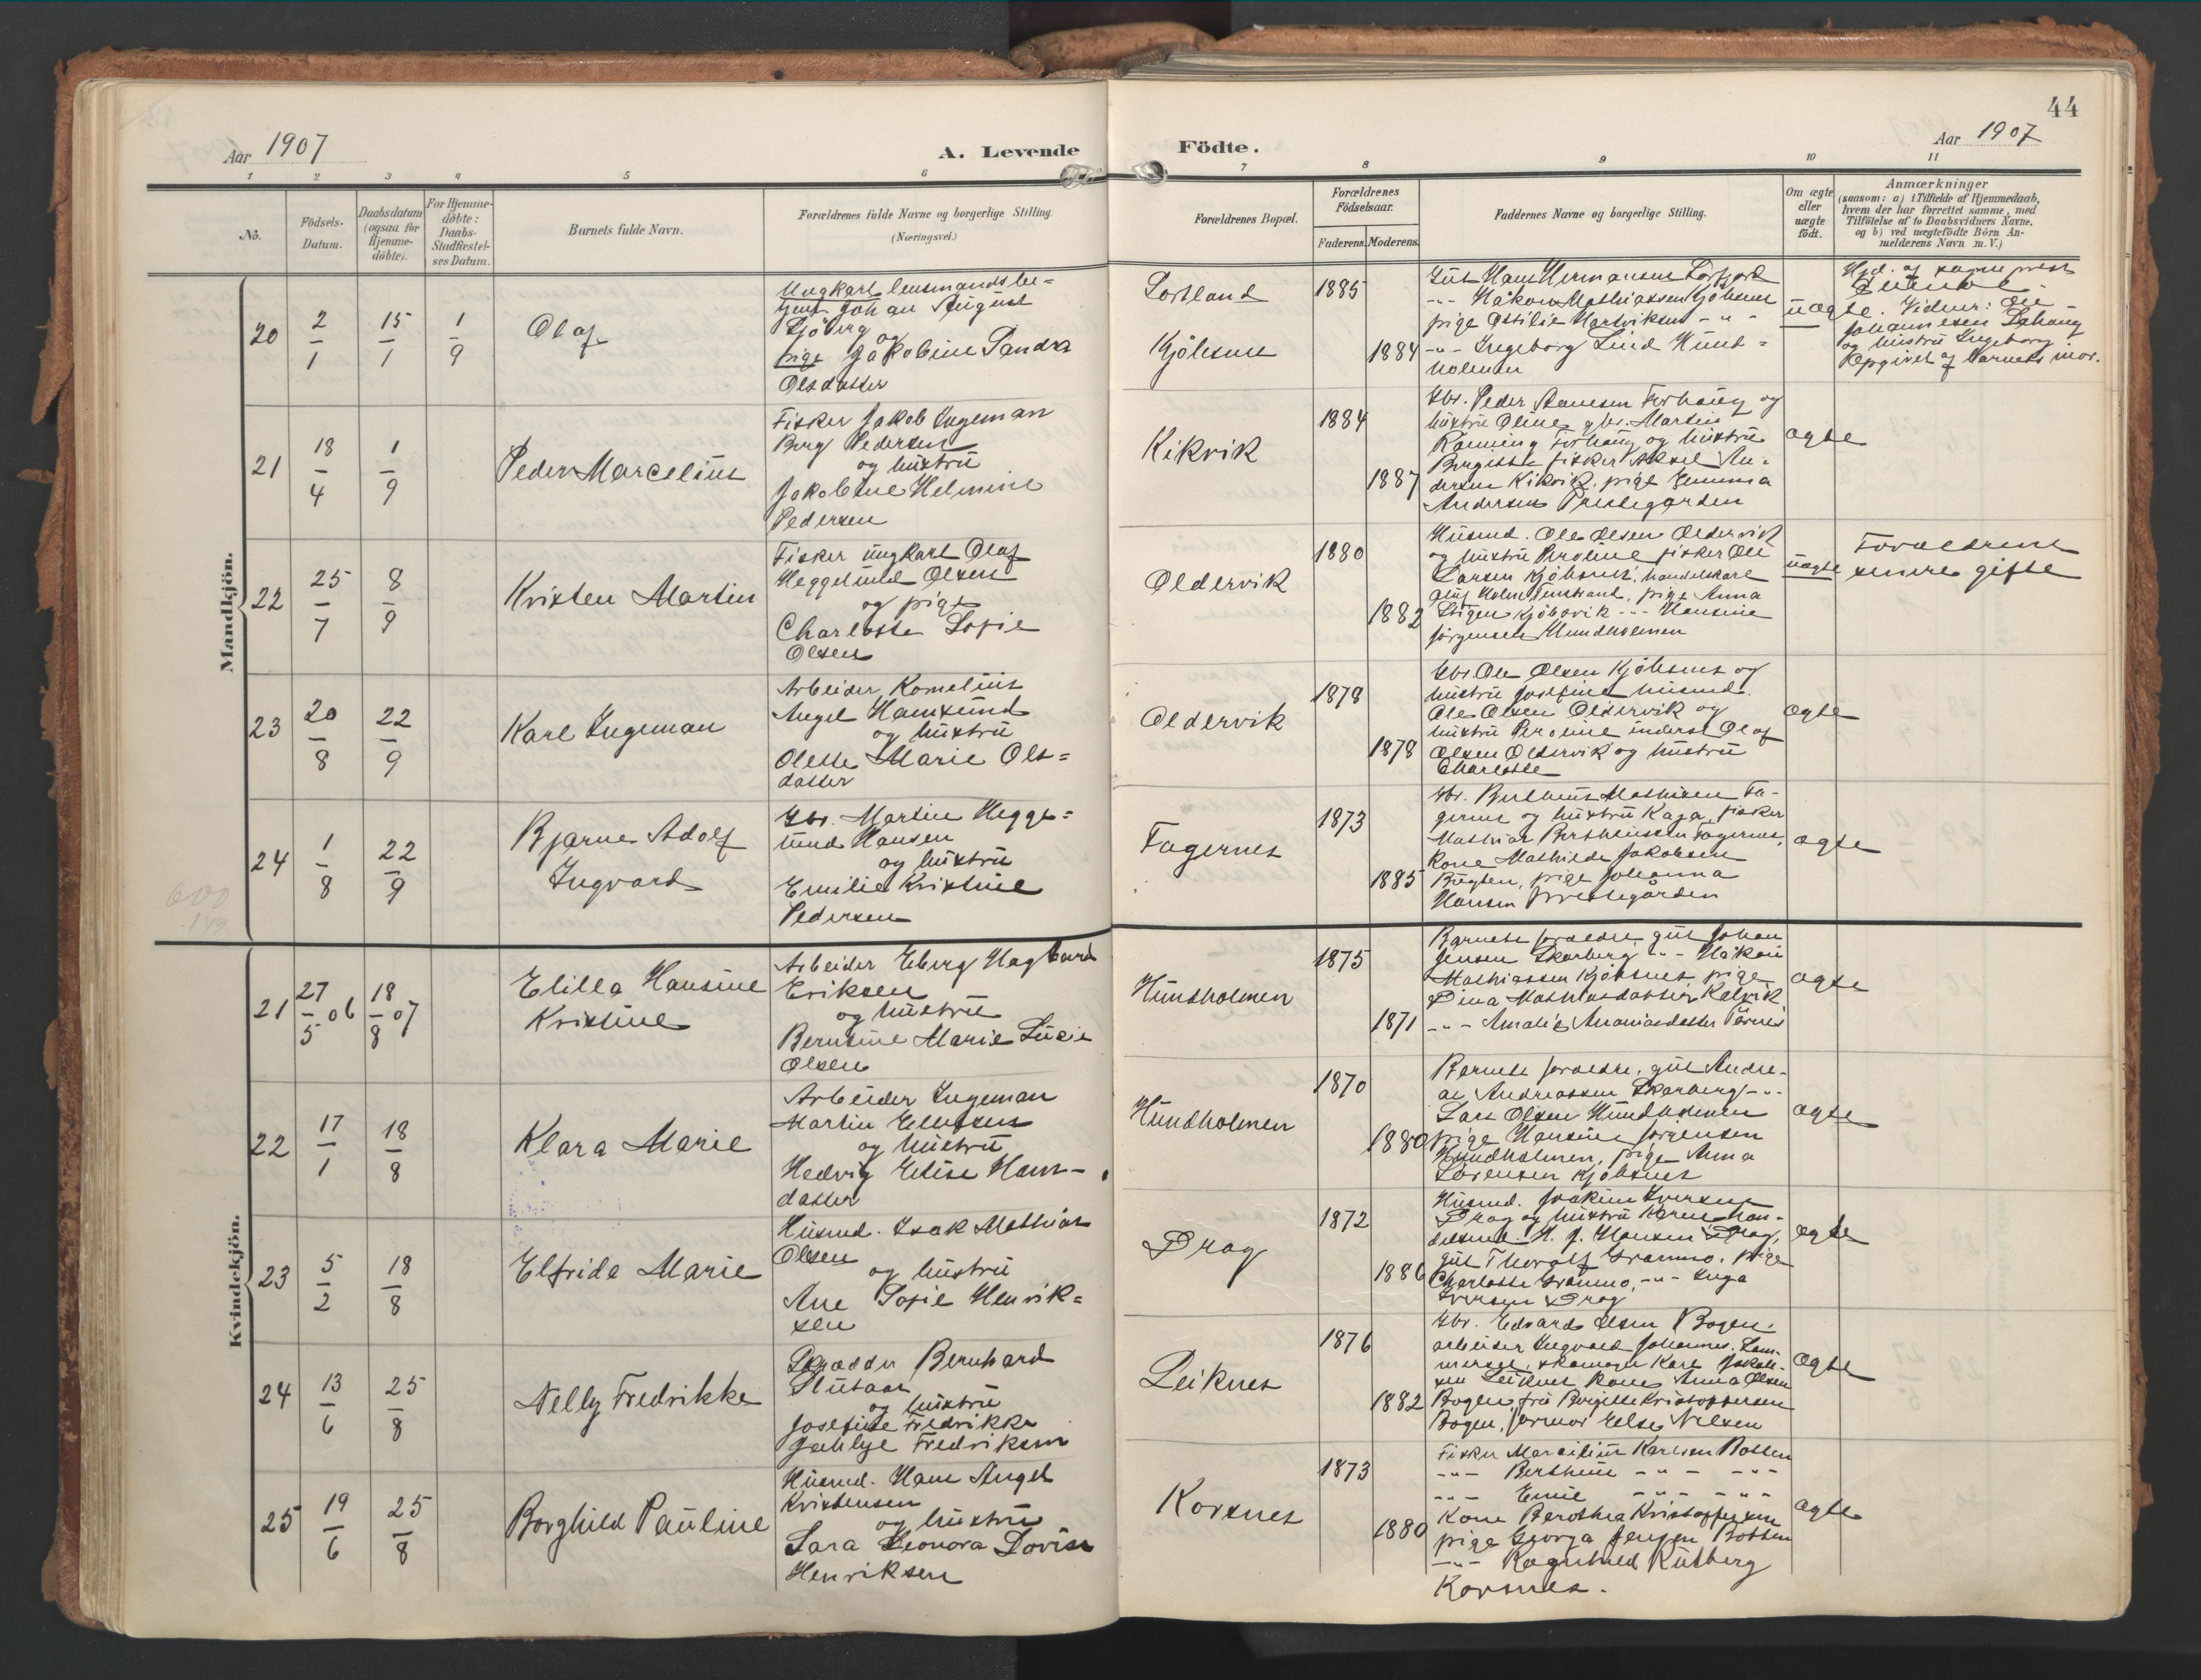 44
Aar 1907
A. Levende
Födte.
Aar 1907
1 2 3 4 5 6 7 8 9 10 11
No.
Födsels-
Datum.
Daabsdatum
(ogsaa for
Hjemme-
döbte).
For Hjemme-
döbte:
Daabs-
Stadfæstel-
ses Datum.
Barnets fulde Navn.
Forældrenes fulde Navne og borgerlige Stilling.
(Næringsvei.)
Forældrenes Bopæl.
Forældrenes
Födselsaar.
Faderens. Moderens.
Faddernes Navne og borgerlige Stilling.
Om ægte
eller
uægte
födt.
Anmærkninger
(saasom: a) i Tilfælde af Hjemmedaab,
hvem der har forrettet samme, med
Tilföielse af to Daabsvidners Navne,
og b) ved uægtefödte Börn An-
melderens Navn m. V.)
Mandkjön.
20
2/1
15/1
1/9
Olaf
Ungkarl lensmandsbe-
tjent Johan August
Sjöberg og
pige Jakobine Sandra
Olsdatter
Lortland
Kjöbsnes
1885
1884
Gut Hans Hermansen
-"- Håkon Mathiassen Kjöbsnes
pige Ottilie Hartviksen -"-
-"- Ingeborg Lind Hund=
holmen
uægte
Hjd. af sogneprest
Vidner: Ole
Johannesen
og hustru Ingeborg
Opgivet af barnets mor.
21
18/4
1/9
Peder Marcelius
Fisker Jakob Ingeman
Berg Pedersen
og hustru
Jakobine Helmine
Pedersen
Kikvik
1884
1887
Gbr. Peder Hansen Forhaug og
hustru Oline, gbr. Martin
Rönning Forhaug og hustru
Bergitte, fisker Aksel An-
dersen Kikvik, pige Jemmia
Andersen Prestegården
ægte
22
25/7
8/9
Kristen Martin
Fisker ungkarl Olaf
Heggelund Olsen
og pige
Charlotte Sofie
Olsen
Oldervik
1880
1882
Husmd. Ole Olsen Oldervik
og hustru Peroline, fisker Ole
Larsen Kjöbsnes, handelskarl
pige Anna
Stigen Kjöbsvik -"- Hansine
Jörgensen Hundholmen
uægte
Forældrene
senere gifte
23
20/8
22/9
Karl Ingeman
Arbeider Kornelius
Angel Hamsund
og hustru
Olette Marie Ols=
datter
Oldervik
1878
1878
Gbr. Ole Olsen Kjöbsnes og
hustru Josefine, husmd.
Ole Olsen Oldervik og
hustru Peroline, inderst Olaf
Olsen Oldervik og hustru
Charlotte
ægte
24
1/8
22/9
Bjarne Adolf
Ingvard
Gbr. Martin Hegge=
lund Hansen
og hustru
Emilie Kristine
Pedersen
Fagernes
1873
1885
Gbr. Bertheus Mathisen Fa-
gernes og hustru Kaja, fisker
Mathias Bertheussen Fagernes,
kone Mathilde Jakobsen
Bugten, pige Johanna
Hansen Prestegården
ægte
Kvindekjön.
21
27/5 06
18/8 07
Elilla Hansine
Kristine
Arbeider Eberg Hagbard
Eriksen
og hustru
Berntine Marie Lucie
Olsen
Hundholmen
1875
1871
Barnets forældre, gut Johan
Jensen Skarberg -"- Håkon
Mathiassen Kjöbsnes, pige
Dina Mathiasdatter Kalvik
-"- Amalie Ananiasdatter
ægte
22
17/1
18/8
Klara Marie
Arbeider Ingeman
Martin Ellefsen
og hustru
Hedvig Elise Hans-
datter
Hundholmen
1870
1880
Barnets forældre, gut Andre-
as Andreassen Skarberg -"-
Lars Olsen Hundholmen
pige Hansine Jörgensen
Hundholmen, pige Anna
Sörensen Kjöbsnes
ægte
23
5/2
18/8
Elfrida Marie
Husmd. Isak Mathias
Olsen
og hustru
Ane Sofie Henrik=
sen
Drag
1872
1886
Husmd. Joakim Iversen
Drag og hustru Karen, han-
delsmd. H. J. Hansen Drag,
gut Thoralf Granmo, pige
Charlotte Granmo, -"- Inga
Iversen Drag
ægte
24
13/6
25/8
Nelly Fredrikke
Skrædder Bernhard
og hustru
Josefine Fredrikke
Fredriksen
Leiknes
1876
1882
Gbr. Edvard Olsen Bogen,
arbeider Ingvald Johannes.
skomager Karl Jakob-
sen Leiknes, kone Anna Olsen
Bogen, fru Bergitte Kristoffersen
Bogen, jormor Else Nilsen
ægte
25
19/6
25/8
Borghild Pauline
Husmd. Hans Angel
Kristensen
og hustru
Sara Leonora Lovise
Henriksen
Korsnes
1873
1880
Fisker Marcilius Karlsen Botten
-"- Bertheus -"- -"-
-"- Emil -"- -"-
Kone Berothea Kristoffersen
pige Georga Jensen Botten
-"- Ragnhild
Korsnes.
ægte